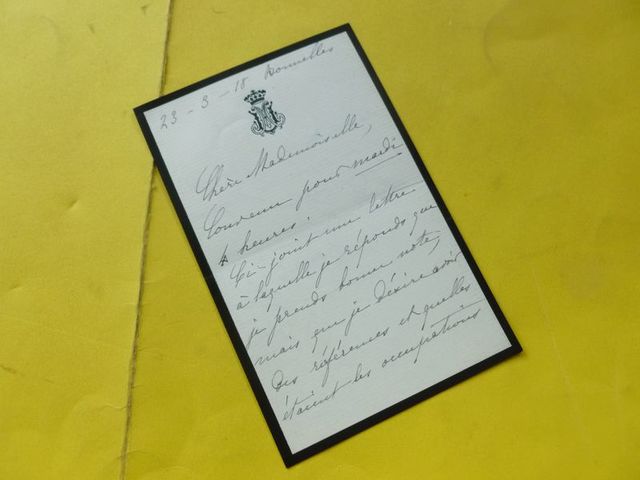 23 - 3 - 18 Bruxelles
Chère Mademoiselle,
Convenu pour mardi
4 heures!
Ci-joint une lettre
à laquelle je réponds que
je prends bonne note,
mais que je désire avoir
des références et quelles
étaient les occupations